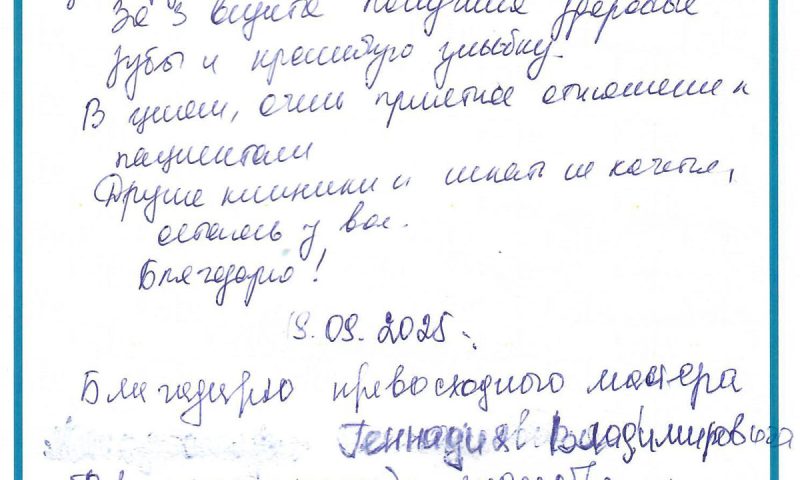 За 3 визита получила здоровые
зубы и красивую улыбку.
В целом, очень приятное отношение к
пациентам
Другие клиники и искать не хочется,
остаюсь у вас.
Благодарю!
9.09.2025.
Благодарю превосходного мастера
Геннадия Владимировича